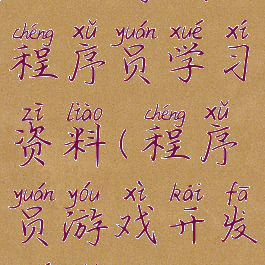 chéng xǔ yuán xué xí
程序员学习
zī liào ( chéng xǔ
资料(程序
yuán yóu xì kāi fā
员游戏开发